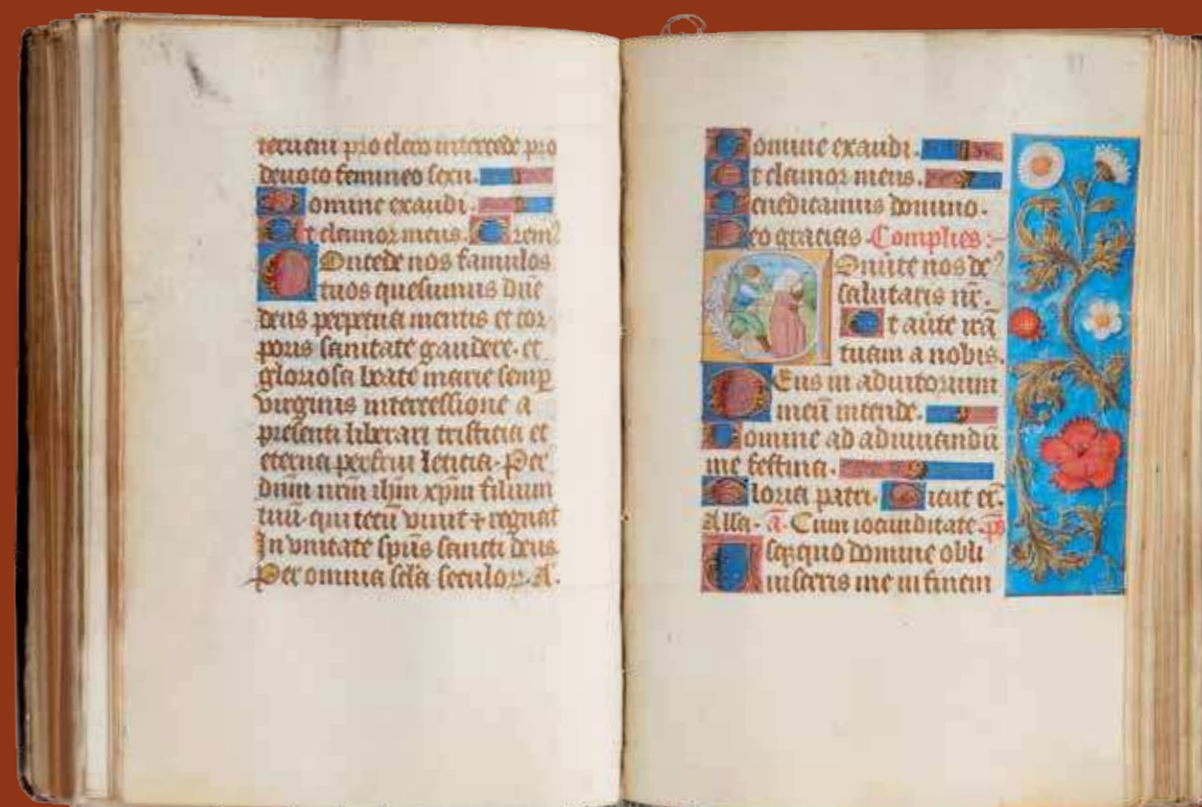 terueni pro clero intercede pro
deuoto femineo sexu.
Domine exaudi.
Et clamor meus. Orem
Concede nos famulos
tuos quesumus dñe
deus perpetua mentis et cor-
poris sanitate gaudere. et
gloriosa beate marie semp
virginis intercessione a
presenti liberari tristicia et
eterna perfrui leticia. Per
dñm nr̄m ihm xp̄m filium
tuū. qui tecū viuit + regnat
In vnitate sp̄us sancti deus.
Per omnia sc̄la seculoꝝ. A.
Domine exaudi.
Et clamor meus.
Benedicamus domino.
Deo gracias. Complies:
Conũte nos de
salutaris nr̄.
Et aũte irā
tuam a nobis.
Deus in adiutorium
meū intende.
Domine ad adiuuandū
me festina.
Gloria patri. Sicut er̄.
Alla. ā. Cum iocunditate. p̄s
Usqꝫquo domine obli
uisceris me in finem